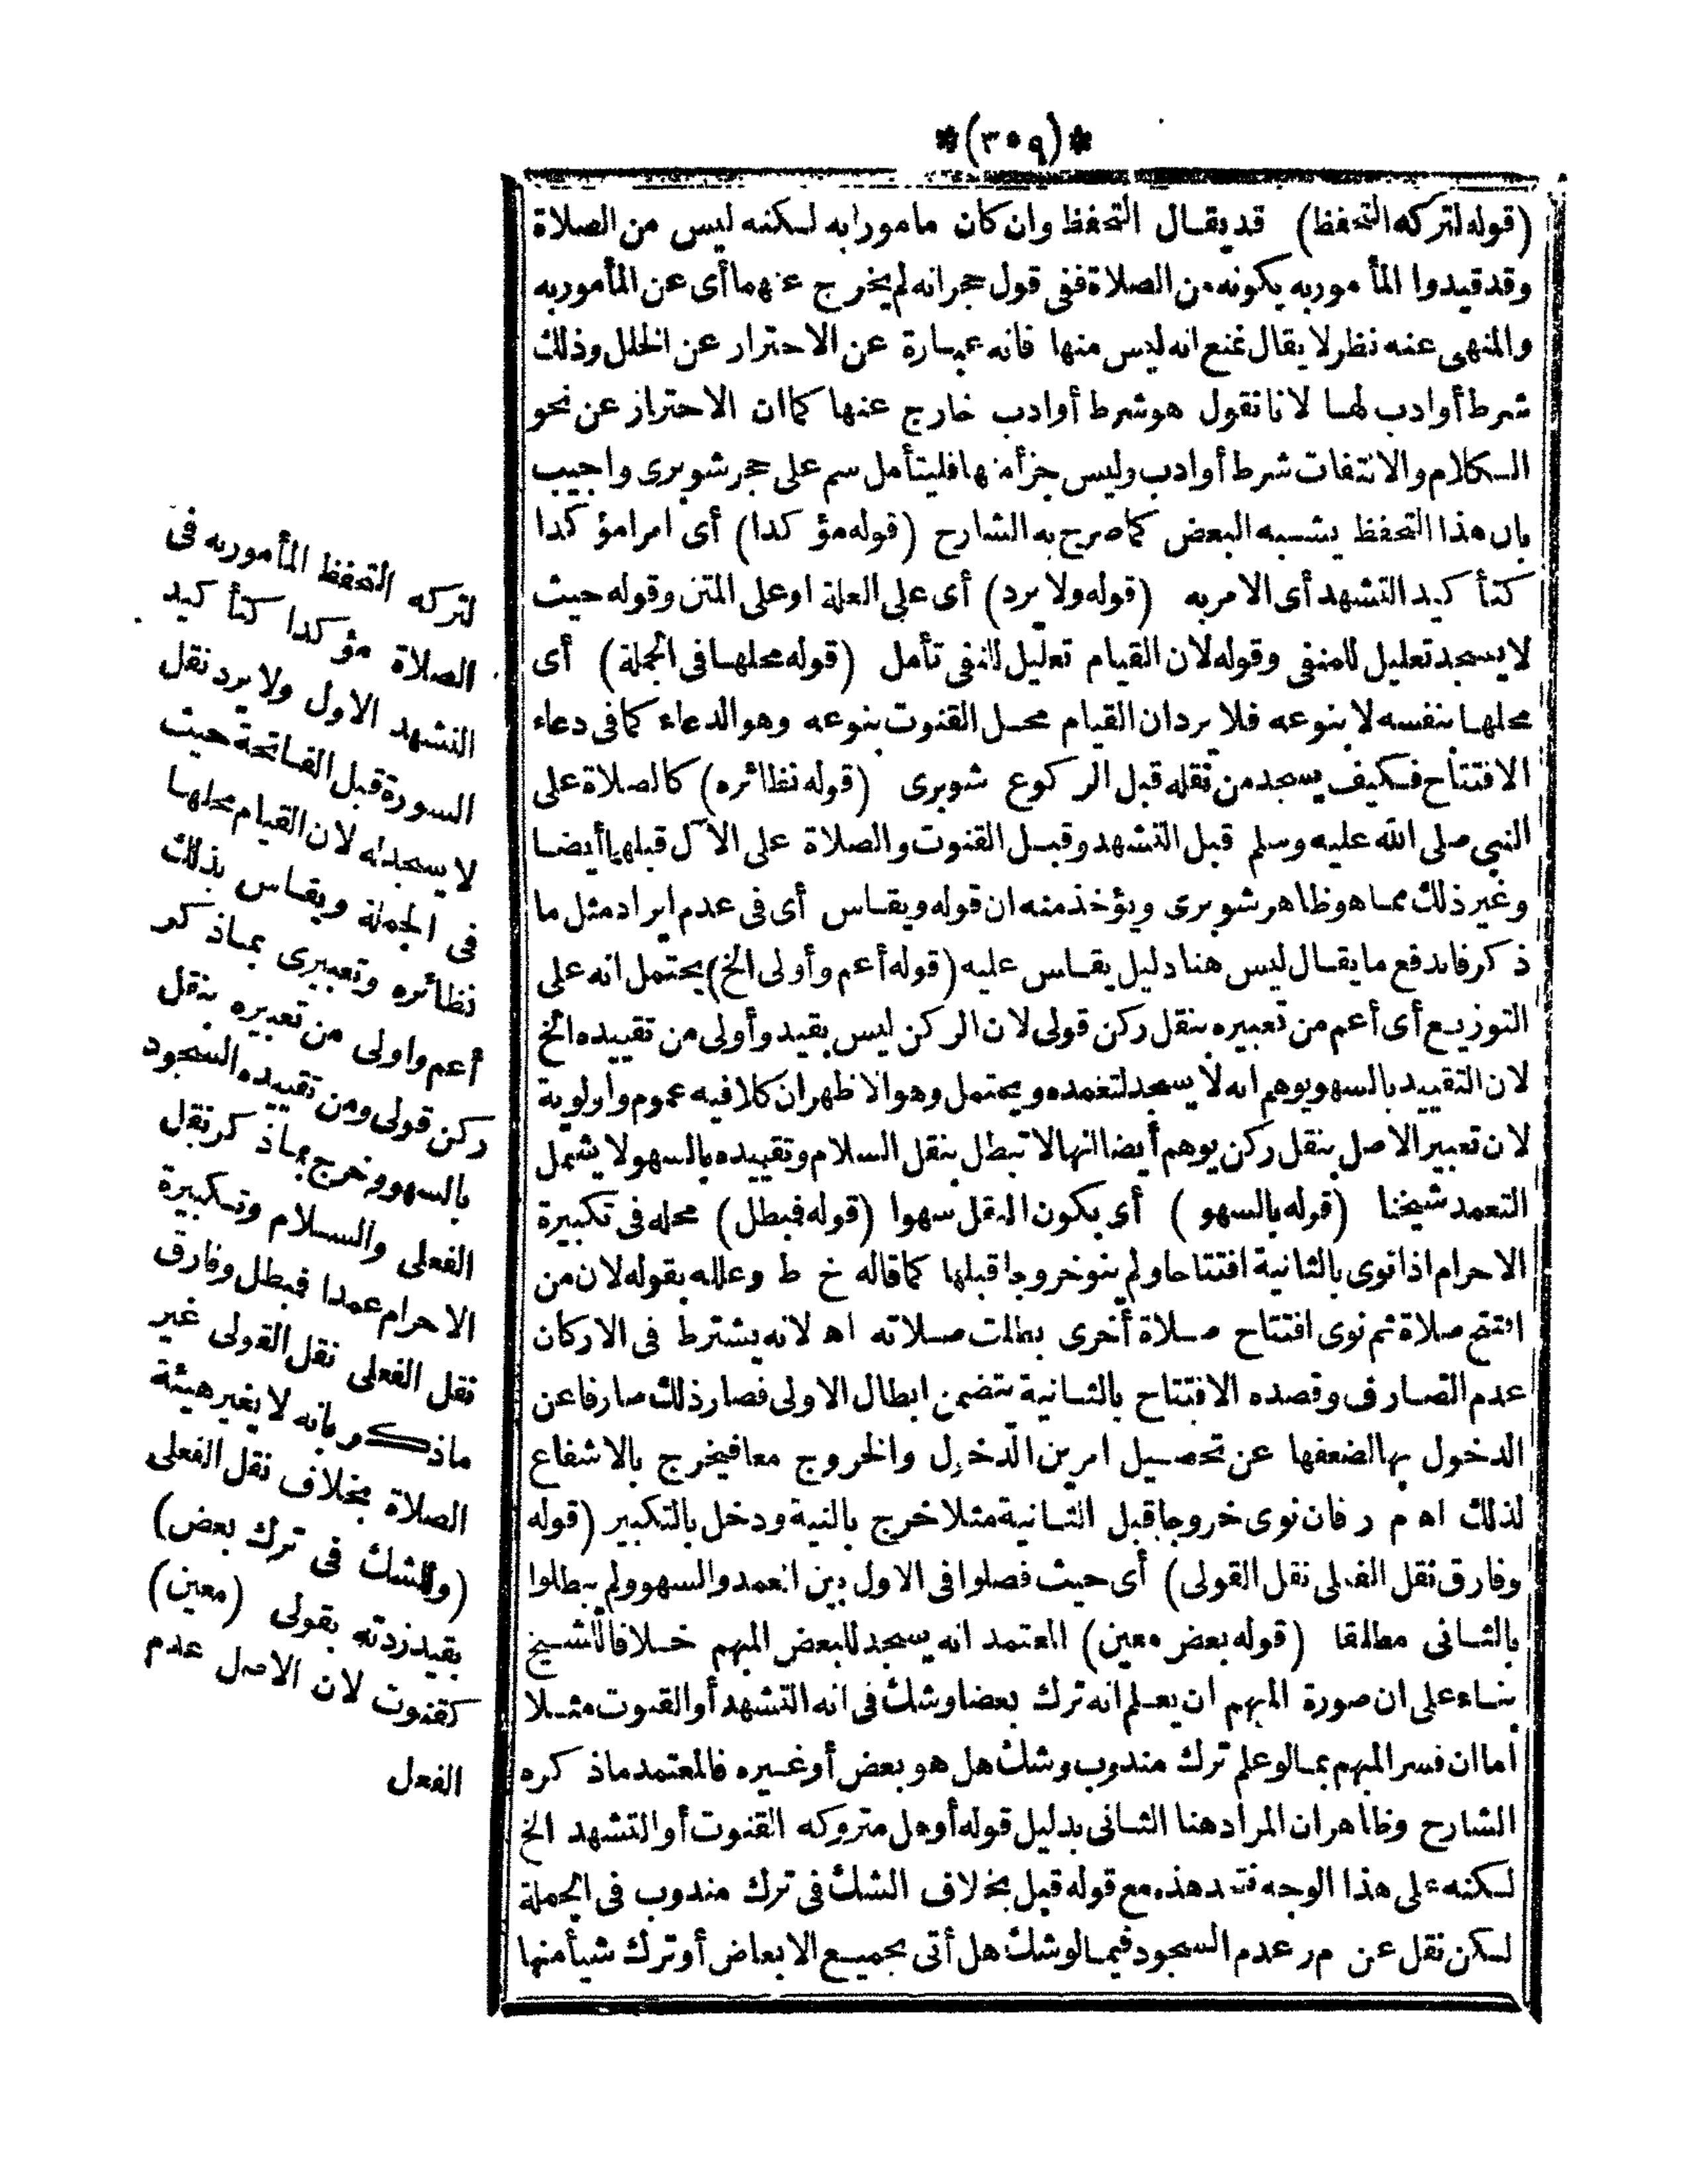 *(٣٥٩)*
(قوله لتركه التحفظ) قد يقال التحفظ وان كان مامورا به لكنه ليس من الصلاة
وقد قيدوا المأمور به بكونه من الصلاة ففى قول حجر انه لم يخرج عنهما أى عن المأمور به
والمنهى عنه نظر لا يقال نمنع انه ليس منها فانه عبارة عن الاحترار عن الخلل وذلك
شرط أوادب لها لانا نقول هو شرط أوادب خارج عنها كما ان الاحتراز عن نحو
الكلام والالتفات شرط أوادب وليس جزأ منها فليتأمل سم على حجر شوبرى واجيب
بان هذا التحفظ يشبه البعض كما صرح به الشارح (قوله مؤكدا) أى امرا مؤكدا
كتأكيد التشهد أى الامر به (قوله ولا يرد) أى على العلة او على المتن وقوله حيث
لا يسجد تعليل للمنفى وقوله لان القيام تعليل للنفى تأمل (قوله محلها فى الجملة) أى
محلها بنفسه لا بنوعه فلا يرد ان القيام محل القنوت بنوعه وهو الدعاء كما فى دعاء
الافتتاح فكيف يسجد من نقله قبل الركوع شوبرى (قوله نظائره) كالصلاة على
النبي صلى الله عليه وسلم قبل التشهد وقبل القنوت والصلاة على الآل قبلهما أيضا
وغير ذلك مما هو ظاهر شوبرى ويؤخذ منه ان قوله ويقاس أى فى عدم ايراد مثل ما
ذكر فاندفع ما يقال ليس هنا دليل يقاس عليه (قوله أعم وأولى الخ) يحتمل انه على
التوزيع أى أعم من تعبيره بنقل ركن قولى لان الركن ليس بقيد وأولى من تقييده الخ
لان التقييد بالسهو يوهم انه لا يسجد لتعمده ويحتمل وهو الاظهر ان كلا فيه عموم وأولوية
لان تعبير الاصل بنقل ركن يوهم أيضا انها لا تبطل بنقل السلام وتقييده بالسهو لا يشمل
التعمد شيخنا (قوله بالسهو) أى بكون النقل سهوا (قوله فبطل) محله فى تكبيرة
الاحرام اذا نوى بالثانية افتتاحا ولم ينو خروجا قبلها كما قاله خ ط وعلله بقوله لان من
افتتح صلاة ثم نوى افتتاح صلاة أخرى بطلت صلاته اه لانه يشترط فى الاركان
عدم الصارف وقصده الافتتاح بالثانية يتضمن ابطال الاولى فصار ذلك صارفا عن
الدخول بها لضعفها عن تحصيل امرين الدخول والخروج معا فيخرج بالاشفاع
لذلك اه م ر فان نوى خروجا قبل الثانية مثلا خرج بالنية ودخل بالتكبير (قوله
وفارق نقل الفعلى نقل القولى) أى حيث فصلوا فى الاول بين العمد والسهو ولم يبطلوا
بالثانى مطلقا (قوله بعض معين) المعتمد انه يسجد للبعض المبهم خلافا للشيخ
بناء على ان صورة المبهم ان يعلم انه ترك بعضا وشك فى انه التشهد أو القنوت مثلا
أما ان فسر المبهم بما لو علم ترك مندوب وشك هل هو بعض أو غيره فالمعتمد ما ذكره
الشارح وظاهر ان المراد هنا الثانى بدليل قوله أو هل متروكه القنوت أو التشهد الخ
لكنه على هذا الوجه هذه مع قوله قبل بخلاف الشك فى ترك مندوب فى الجملة
لكن نقل عن م ر عدم السجود فيما لو شك هل أتى بجميع الابعاض أو ترك شيأ منها
لتركه التحفظ المأمور به فى
الصلاة مؤكدا كتأكيد
التشهد الاول ولا يرد نقل
السورة قبل الفاتحة حيث
لا يسجد له لان القيام محلها
فى الجملة ويقاس بذلك
نظائره وتعبيرى بماذكر
أعم واولى من تعبيره بنقل
ركن قولى ومن تقييده السجود
بالسهو وخرج بماذكر نقل
الفعلى والسلام وتكبيرة
الاحرام عمدا فبطل وفارق
نقل الفعلى نقل القولى غير
ماذكر بانه لا يغير هيئة
الصلاة بخلاف نقل الفعلى
(وللشك فى ترك بعض)
بقيد زدته بقولى (معين)
كقنوت لان الاصل عدم
الفعل